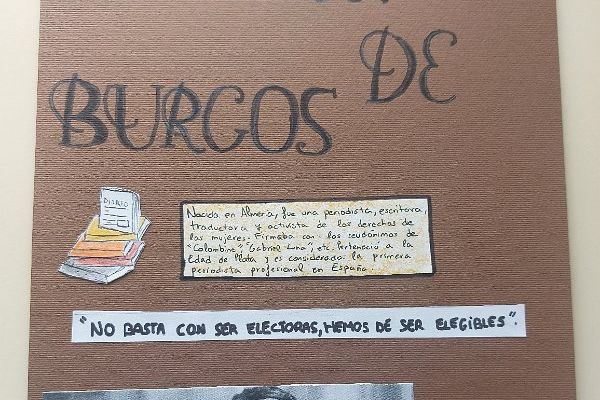 DE
BURGOS
DIARIO
Nacida en Almería, fue una periodista, escritora,
traductora y activista de los derechos de
las mujeres. Firmaba con los seudónimos de
"Colombine", "Gabriel Luna", etc. Perteneció a la
Edad de Plata y es considerada la primera
periodista profesional en España.
"NO BASTA CON SER ELECTORAS, HEMOS DE SER ELEGIBLES".